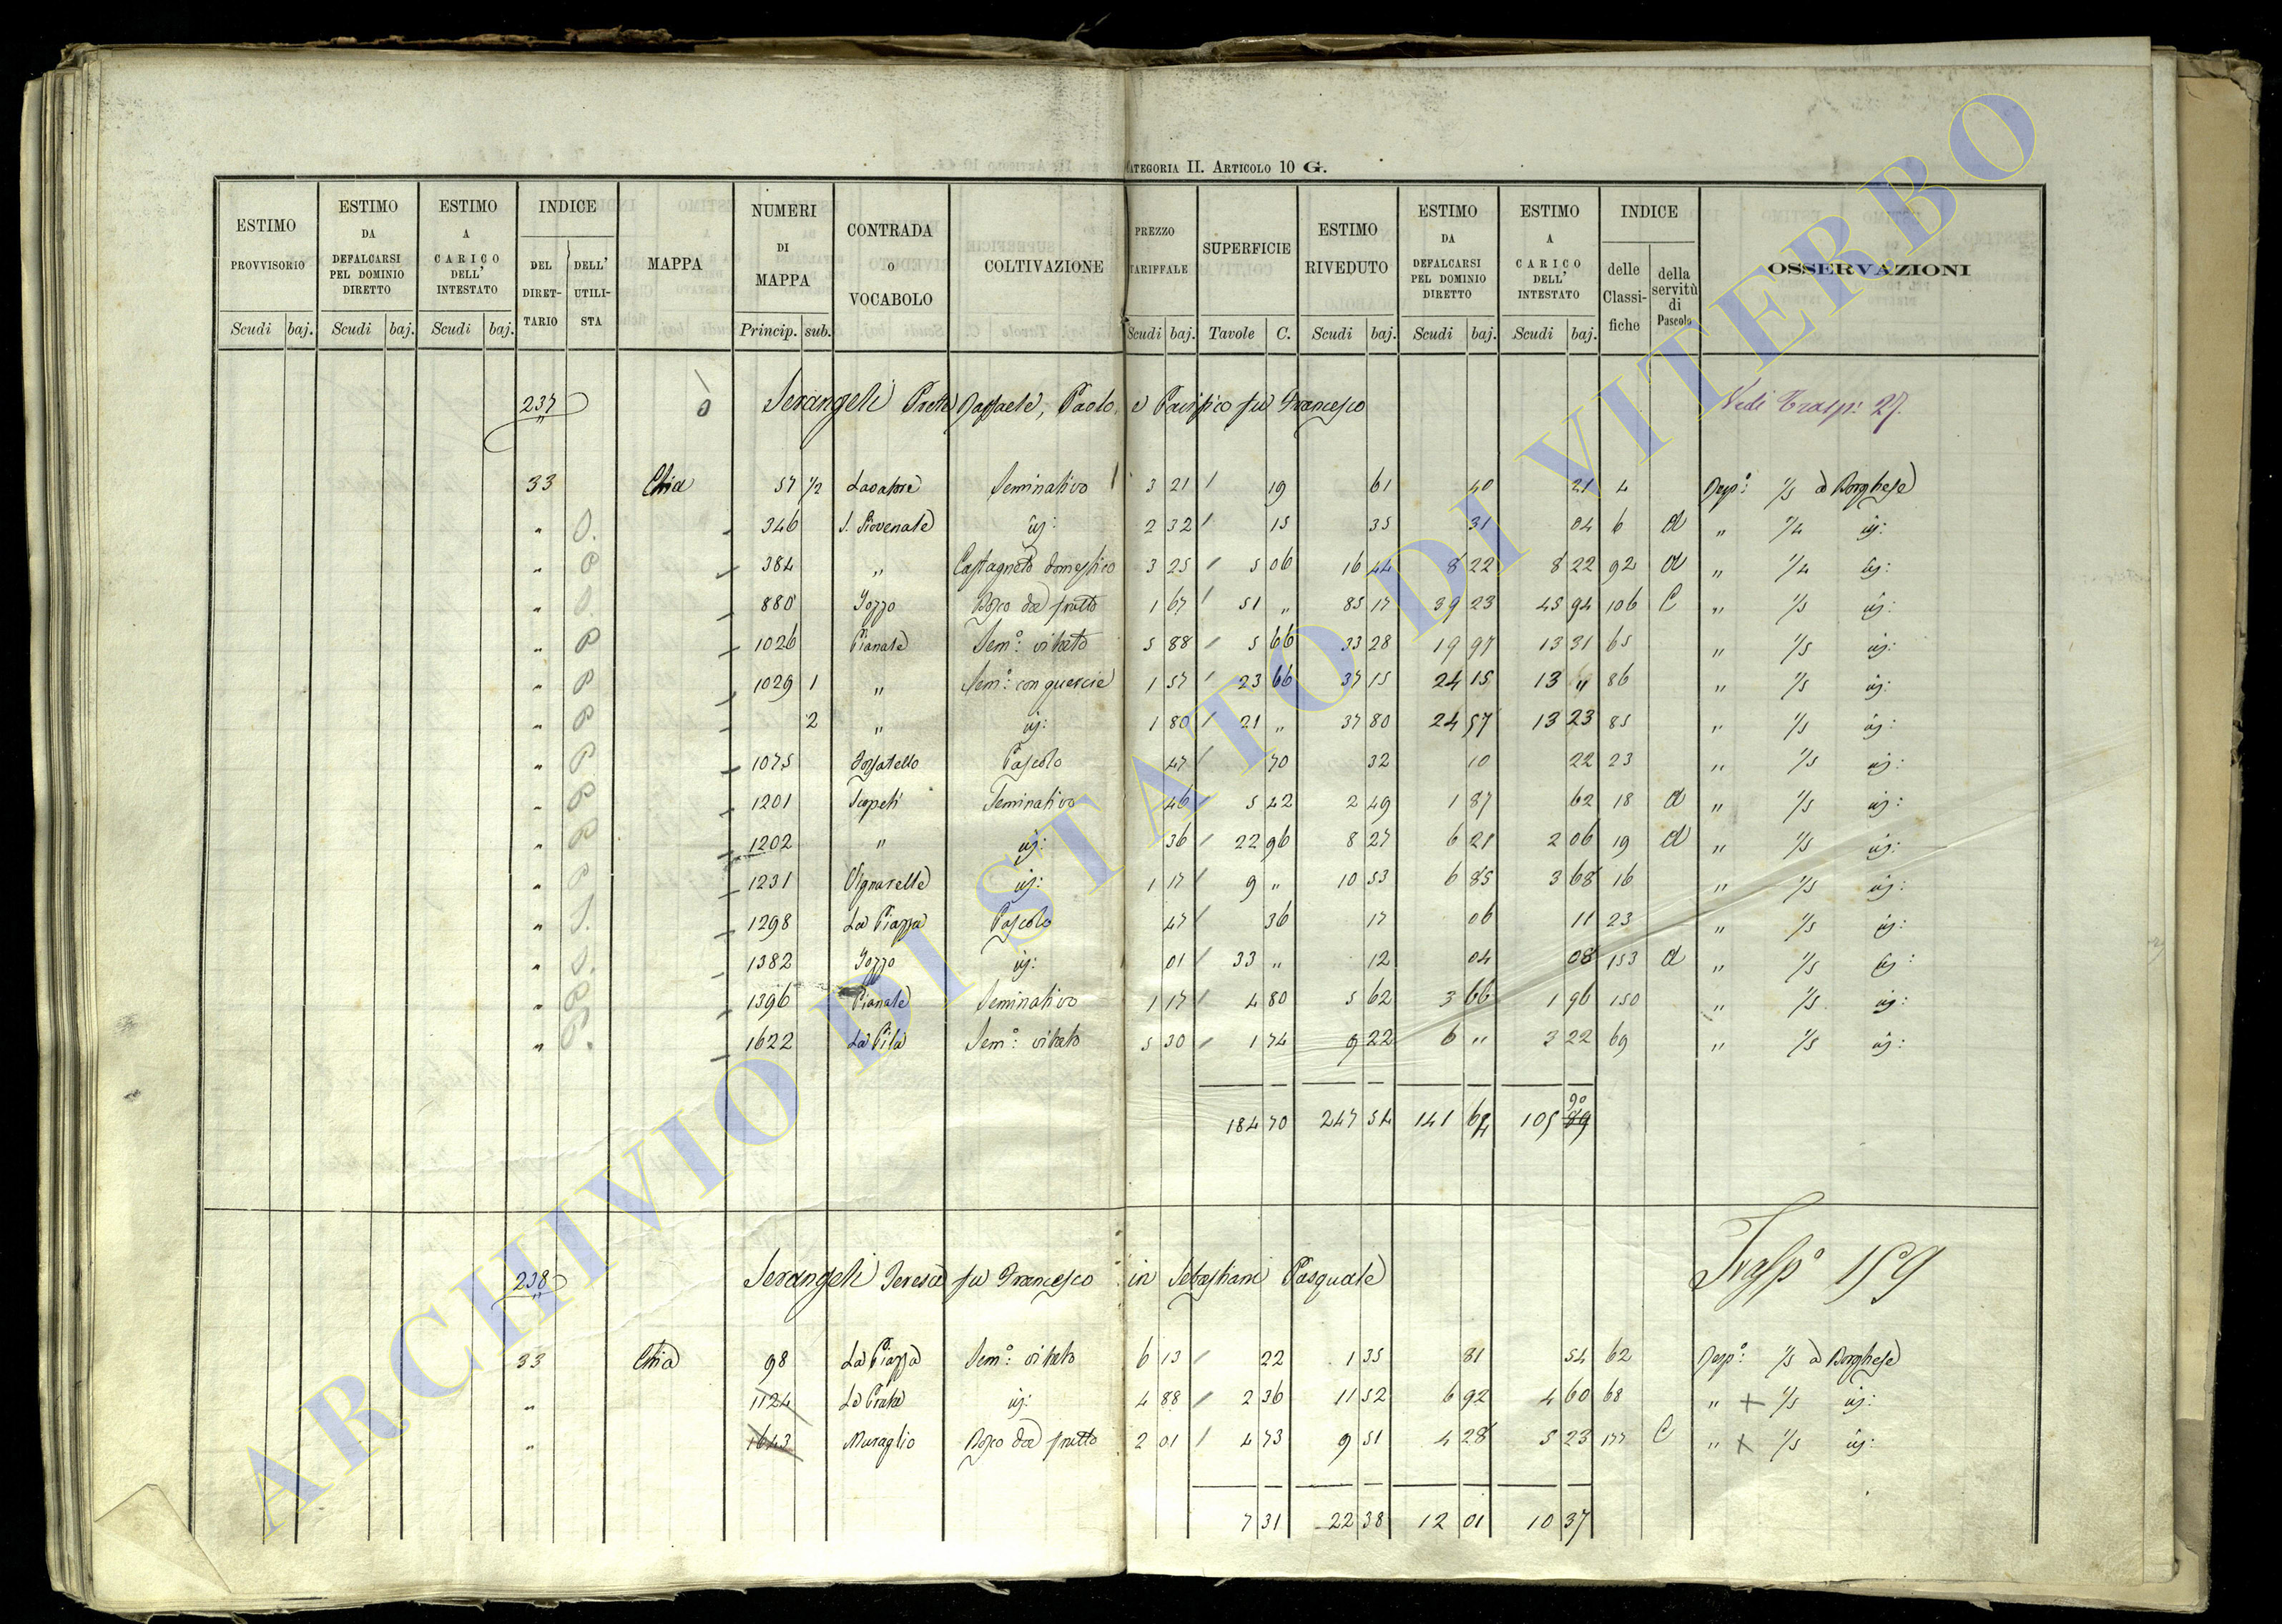 CATEGORIA II. ARTICOLO 10 G.
ESTIMO PROVVISORIO Scudi baj. ESTIMO DA DEFALCARSI PEL DOMINIO DIRETTO Scudi baj. ESTIMO A CARICO DELL' INTESTATO Scudi baj. INDICE DEL DIRETTARIO DELL' UTILISTA MAPPA NUMERI DI MAPPA Princip. sub. CONTRADA O VOCABOLO COLTIVAZIONE PREZZO TARIFFALE Scudi baj. SUPERFICIE Tavole C. ESTIMO RIVEDUTO Scudi baj. ESTIMO DA DEFALCARSI PEL DOMINIO DIRETTO Scudi baj. ESTIMO A CARICO DELL' INTESTATO Scudi baj. INDICE delle Classifiche della servitù di Pascolo OSSERVAZIONI
237 Serangeli Raffaele, Paolo, e Pacifico fu Francesco Vedi Trasp: 27.
33 Chia 57 1/2 Lavatore Seminativo 3 21 19 61 40 21 4 Risp: 1/5 a Borghese
" 346 S. Piovenale id: 2 32 15 35 31 04 6 a " 1/4 id:
" 384 " Castagneto domestico 3 25 5 06 16 44 8 22 8 22 92 a " 1/4 id:
" 880 Pozzo Bosco da frutto 1 67 51 " 85 17 39 23 45 94 106 C " 1/5 id:
" 1026 Pianale Sem: vitato 5 88 5 66 33 28 19 97 13 31 65 " 1/5 id:
" 1029 1 " Sem: con quercie 1 57 23 66 37 15 24 15 13 " 86 " 1/5 id:
" 2 " id: 1 80 21 " 37 80 24 57 13 23 85 " 1/5 id:
" 1075 Fossatello Pascolo 47 70 32 10 22 23 " 1/5 id:
" 1201 Scopeti Seminativo 46 5 42 2 49 1 87 62 18 a " 1/5 id:
" 1202 " id: 36 22 96 8 27 6 21 2 06 19 a " 1/5 id:
" 1231 Vignarelle id: 1 17 9 " 10 53 6 85 3 68 16 " 1/5 id:
" 1298 La Piazza Pascolo 47 36 17 06 11 23 " 1/5 id:
" 1382 Pozzo id: 01 33 " 12 04 08 153 a " 1/5 id:
" 1396 Pianale Seminativo 1 17 4 80 5 62 3 66 1 96 150 " 1/5 id:
" 1622 La Pila Sem: vitato 5 30 1 74 9 22 6 " 3 22 69 " 1/5 id:
184 70 247 54 141 64 105 89 90
238 Serangeli Teresa fu Francesco in Sebastiani Pasquale Trasp° 159
33 Chia 98 La Piazza Sem: vitato 6 13 22 1 35 81 54 62 Risp: 1/5 a Borghese
" 1124 La Prata id: 4 88 2 36 11 52 6 92 4 60 68 " + 1/5 id:
" 1643 Muraglio Bosco da frutto 2 01 4 73 9 51 4 28 5 23 177 C " + 1/5 id:
7 31 22 38 12 01 10 37
ARCHIVIO DI STATO DI VITERBO